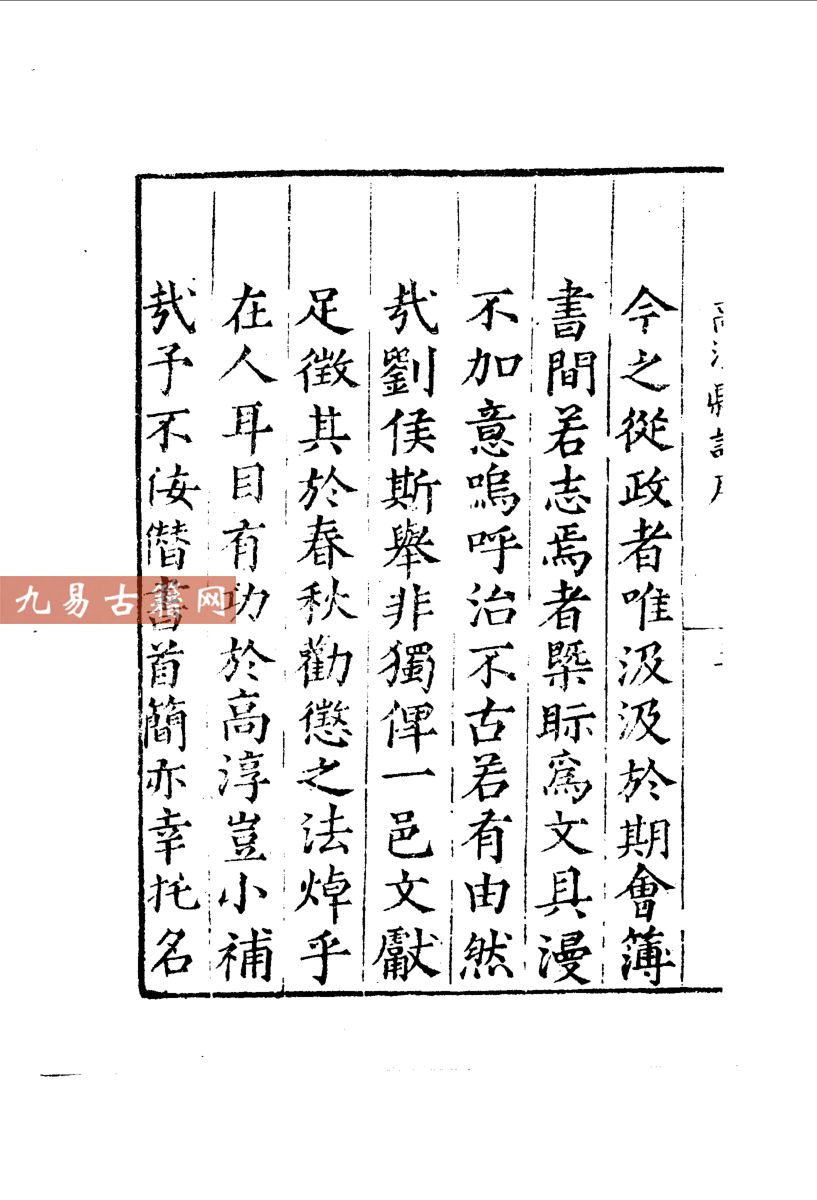 今之從政者唯汲汲於期會簿
書間若志焉者槩眎爲文具漫
不加意嗚呼治不古若有由然
哉劉侯斯舉非獨俾一邑文獻
足徵其於春秋勸懲之法焯乎
在人耳目有功於高淳豈小補
哉予不侫僣書首簡亦幸托名
九易古籍网